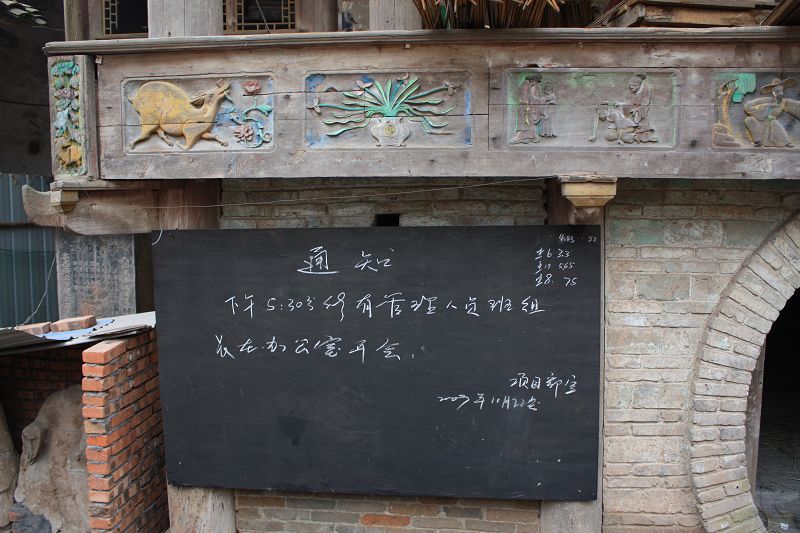 通知
下午5:30分所有管理人员班组
长在办公室开会.
项目部宣
2009年11月22日